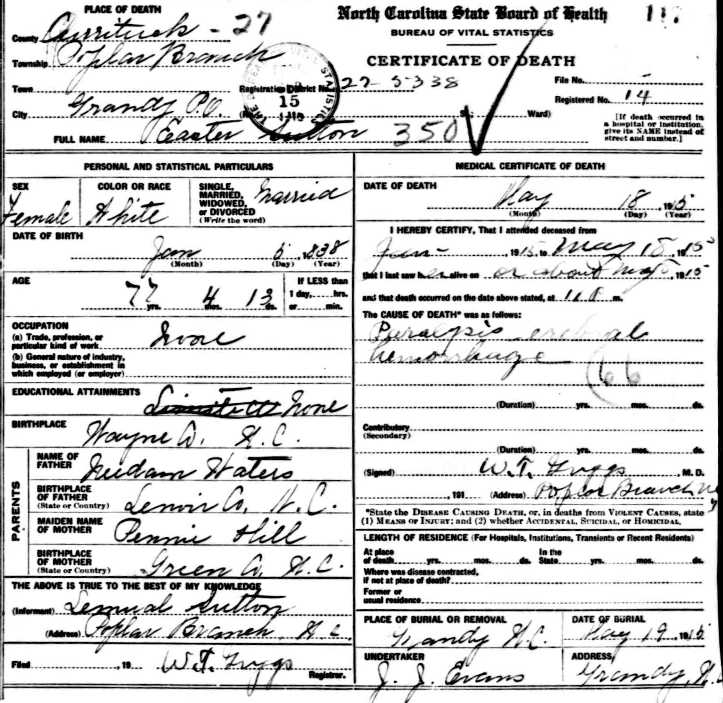 PLACE OF DEATH
County Currituck - 27
Township Poplar Branch
Town
City Grandy P.O.
FULL NAME Easter Sutton 350
North Carolina State Board of Health 117
BUREAU OF VITAL STATISTICS
CERTIFICATE OF DEATH
Registration District No. 27-5338 File No. -
Registered No. 14
St.; Ward)
[If death occurred in
a hospital or institution,
give its NAME instead of
street and number.]
15
PERSONAL AND STATISTICAL PARTICULARS
SEX Female
COLOR OR RACE White
SINGLE, MARRIED, WIDOWED, or DIVORCED (Write the word) Married
DATE OF BIRTH
Jan 5, 1838
(Month) (Day) (Year)
AGE
77 yrs. 4 mos. 13 ds.
If LESS than
1 day, hrs.
or min.
OCCUPATION
(a) Trade, profession, or
particular kind of work None
(b) General nature of industry,
business, or establishment in
which employed (or employer)
EDUCATIONAL ATTAINMENTS None
BIRTHPLACE Wayne Co. N.C.
PARENTS
NAME OF FATHER Waters
BIRTHPLACE OF FATHER (State or Country) Lenoir Co. N.C.
MAIDEN NAME OF MOTHER Pennie Hill
BIRTHPLACE OF MOTHER (State or Country) Green Co. N.C.
THE ABOVE IS TRUE TO THE BEST OF MY KNOWLEDGE
(Informant) Lemual Sutton
(Address) Poplar Branch, N.C.
Filed , 19 W.T. Griggs
Registrar.
MEDICAL CERTIFICATE OF DEATH
DATE OF DEATH May 18, 1915
(Month) (Day) (Year)
I HEREBY CERTIFY, That I attended deceased from
Jan- 1915, to May 18, 1915
that I last saw her alive on or about May 1915
and that death occurred on the date above stated, at m.
The CAUSE OF DEATH* was as follows:
Paralysis
hemorrhage 66
(Duration) yrs. mos. ds.
Contributory
(Secondary)
(Duration) yrs. mos. ds.
(Signed) W.T. Griggs M. D.
, 191 (Address) Poplar Branch NC
*State the DISEASE CAUSING DEATH, or, in deaths from VIOLENT CAUSES, state
(1) MEANS OF INJURY; and (2) whether ACCIDENTAL, SUICIDAL, OR HOMICIDAL.
LENGTH OF RESIDENCE (For Hospitals, Institutions, Transients or Recent Residents)
At place of death yrs. mos. ds. In the State yrs. mos. ds.
Where was disease contracted,
if not at place of death?
Former or
usual residence
PLACE OF BURIAL OR REMOVAL Grandy N.C.
DATE OF BURIAL May 19 1915
UNDERTAKER J. J. Evans
ADDRESS Grandy, N.C.